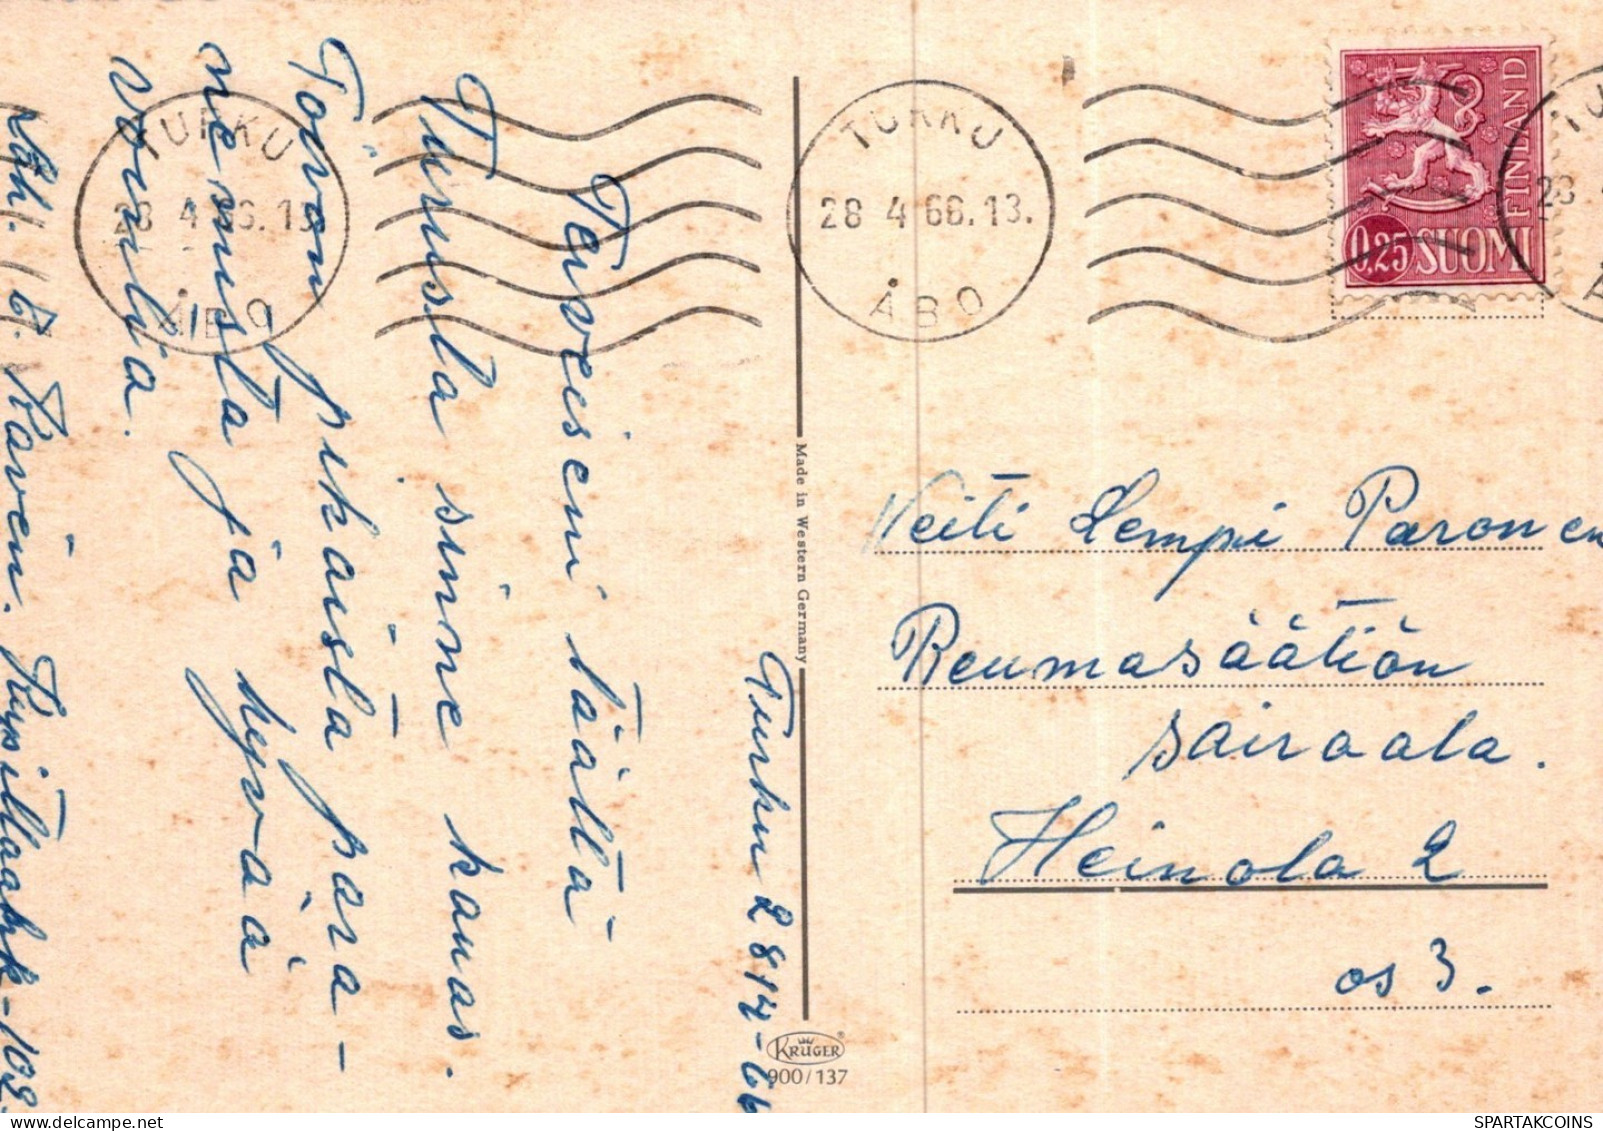 Turku 28/4-66
Terveiseni täältä
Turusta sinne kauas.
Toivon pikaista para-
nemista ja hyvää
vointia.
TURKU
28 4 66.13
ÅBO
TURKU
28 4 66.13.
ÅBO
FINLAND
0,25 SUOMI
Neiti Lempi Paronen
Reumasäätiön
sairaala.
Heinola 2
os 3.
Made in Western Germany
KRÜGER
900/137
SPARTAKCOINS